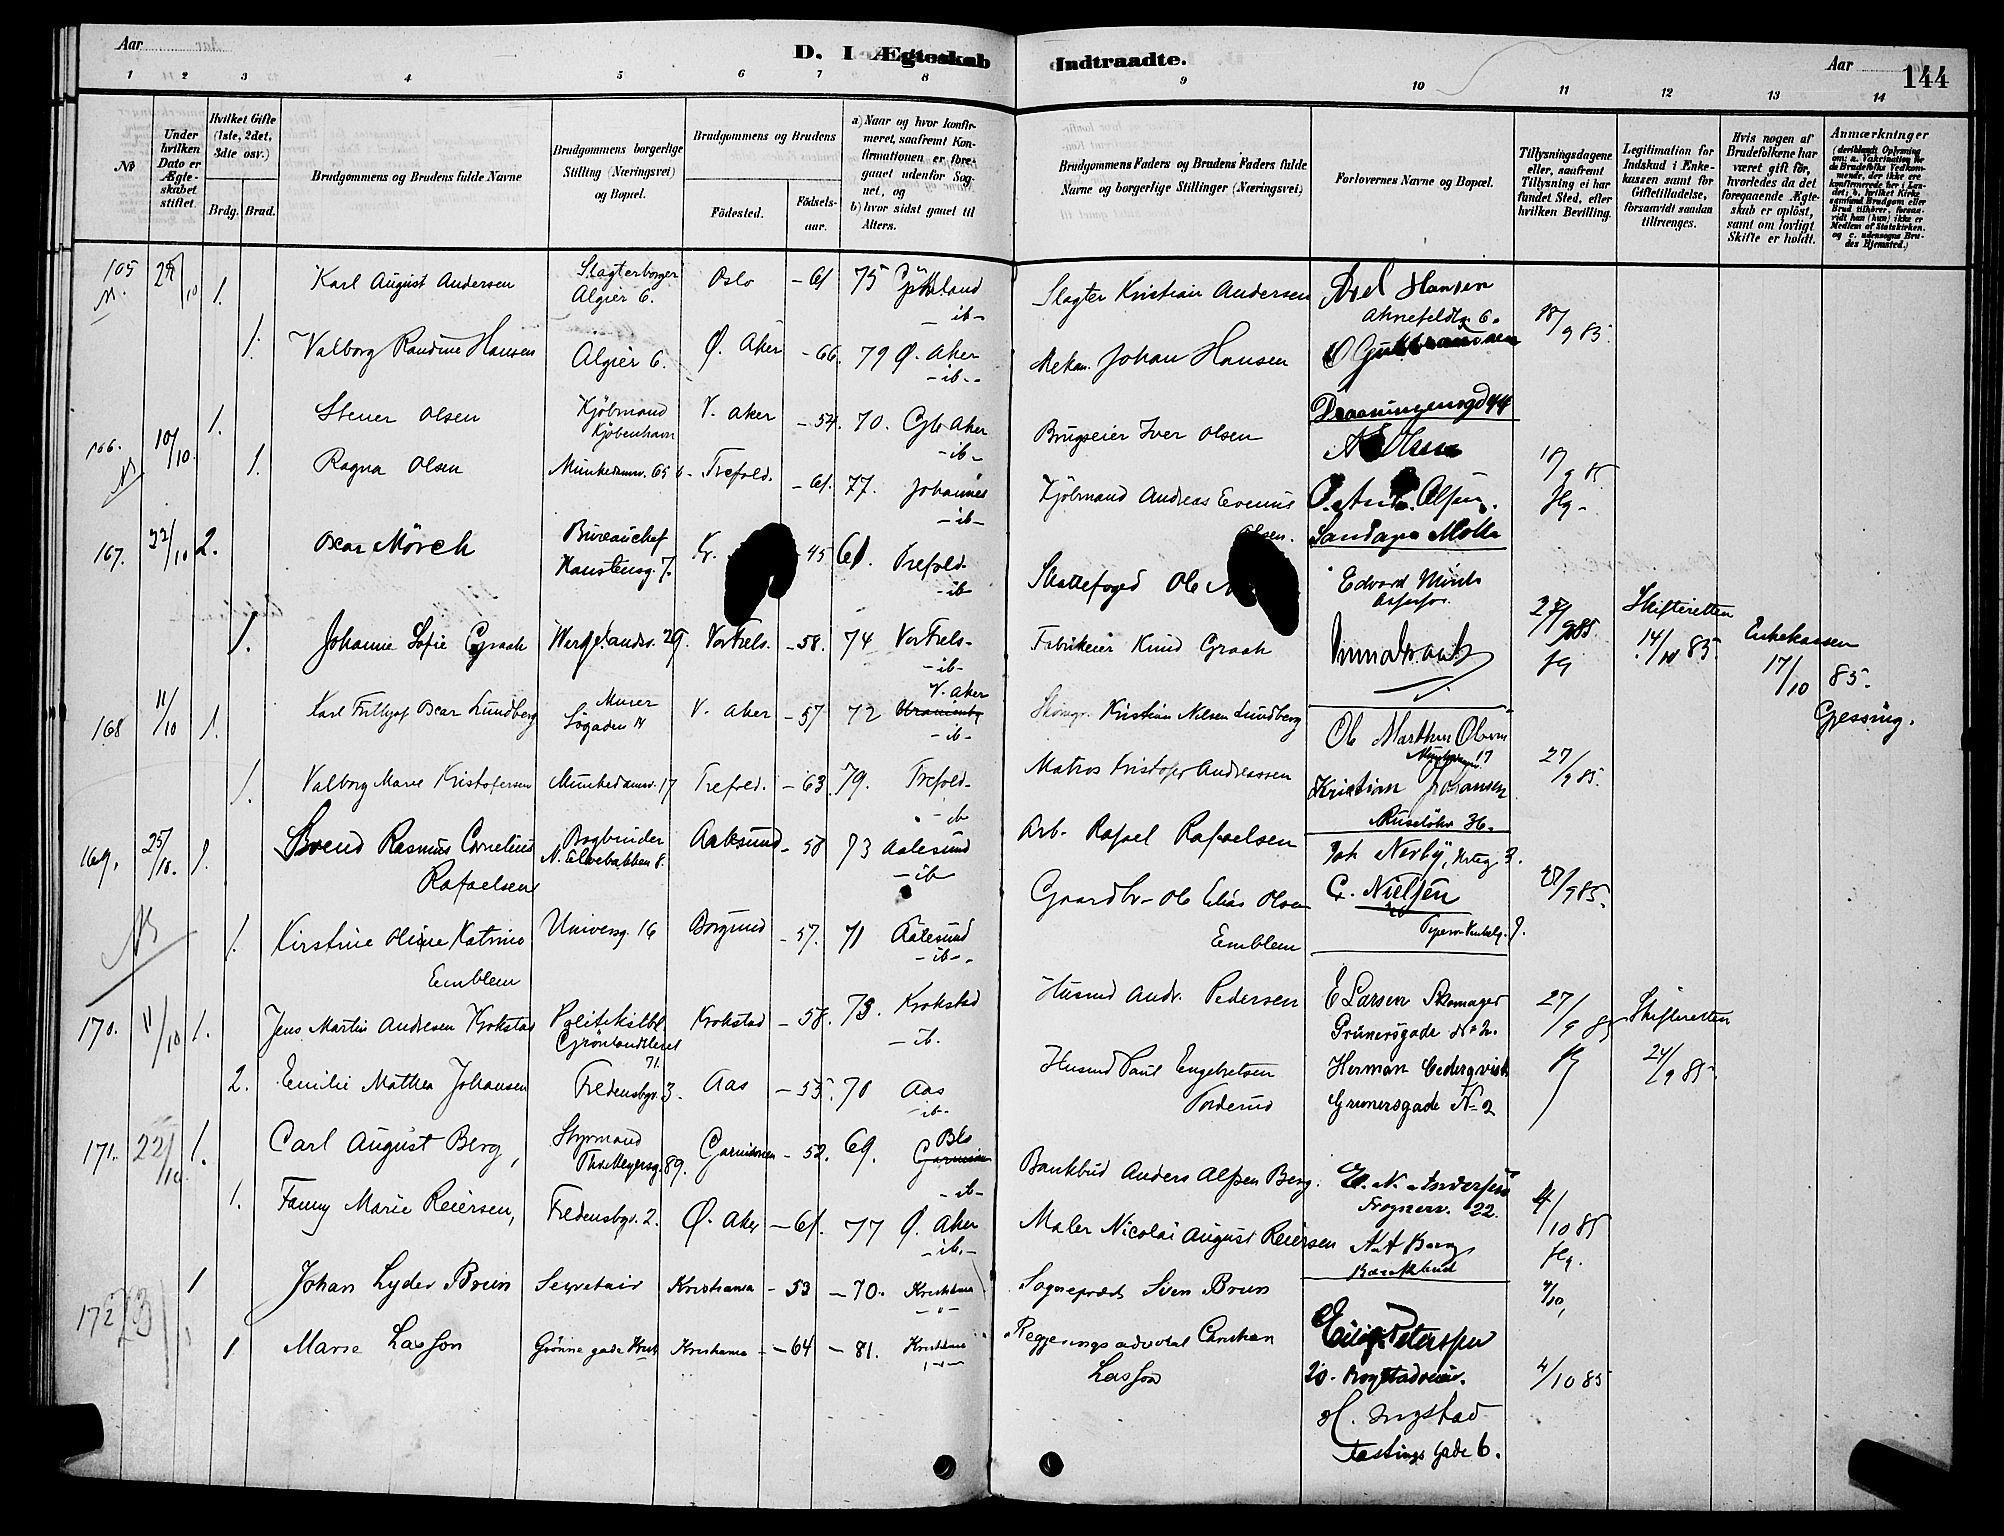 Aar
D. I Ægteskab Indtraadte.
Aar
144
1 2 3 4 5 6 7 8 9 10 11 12 13 14
№
Under hvilken Dato er Ægteskabet stiftet.
Hvilket Gifte (1ste, 2det, 3die osv.)
Brdg. Brud.
Brudgommens og Brudens fulde Navne
Brudgommens borgerlige Stilling (Næringsvei) og Bopæl.
Brudgommens og Brudens
Fødested.
Fødselsaar.
a) Naar og hvor konfirmeret, saafremt Konfirmationen er foregaaet udenfor Sognet, og
b) hvor sidst gaaet til Alters.
Brudgommens Faders og Brudens Faders fulde Navne og borgerlige Stillinger (Næringsvei)
Forlovernes Navne og Bopæl.
Tillysningsdagene eller, saafremt Tillysning ei har fundet Sted, efter hvilken Bevilling.
Legitimation for Indskud i Enkekassen samt for Giftetilladelse, forsaavidt saadan tiltrænges.
Hvis nogen af Brudefolkene har været gift før, hvorledes da det foregaaende Ægteskab er opløst, samt om lovligt Skifte er holdt.
Anmærkninger (deriblandt Oplysning om: a. Vakcination for de Brudefolks Vedkommende, der ikke ere konfirmerede her i Landet; b. hvilket Kirkesamfund Brudgom eller Brud tilhører, forsaavidt han (hun) ikke er Medlem af Statskirken. og c. udensogns Brudes Hjemsted.)
105 1. Karl August Andersen Slagterborger Algier 6. Oslo - 61 75 Grønland Slagter Kristian Andersen Axel Hansen
-ib- Ahnefeldtg. 6. 18/9 85.
1. Valborg Randine Hansen Algier 6. Ø. Aker - 66. 79 Ø. Aker Mekan. Johan Hansen O Gulbrandsen
-ib-
166. 10/10. 1. Stener Olsen Kjöbmand Kjöbenhavn V. Aker - 54. 70. Gl. Aker Brugseier Iver Olsen A Olsen
-ib-
1. Ragna Olsen Munkedamsv. 65 b - Trefold. - 61. 77. Johannes Kjöbmand Andreas Evenus Olsen. 18/9 85
-ib- Hg-
167. 22/10 2. Oscar Mörch Bureauchef Haustensg. 7. Kr. - 45 61. Trefold- Skattefoged Ole Edvard
-ib-
1. Johanne Sofie Graah Wergelandsv. 29. Vor Frels. - 58. 74 Vor Frels- Fabrikeier Knud Graah 27/9 85. Skifteretten 14/10 85. Enkekassen 17/10 85. Gjessing.
-ib- Hg
168 11/10 1. Karl Frithjof Oscar Lundberg Murer Løgaden 14 V. Aker - 57 72 V. Aker Kristian Nilsen Lundberg Ole Marthin Olsen
-ib- 17 27/9 85.
1. Valborg Marie Kristofersen Munkedamsv. 17 Trefold. - 63. 79. Trefold- Matros Kristofer Andreassen Kristian Johansen
-ib- Ruselökv 36.
169. 25/10. 1. Svend Rasmus Cornelius Rafaelsen Bogbinder N. Elvebakken 8. Aalesund - 58 73 Aalesund Arb- Rafael Rafaelsen Joh Nerby, 3.
-ib- C. Nielsen 27/9 85.
1. Kirstine Oline Katrine Emblem Universg. 16 Borgund - 57. 71 Aalesund Gaardbr- Ole Elias Olsen Emblem
-ib-
170. 11/10 1. Jens Martin Andresen Krokstad Politikstbl. Grönlandsleret 71. Krokstad - 58. 73. Krokstad Husmd Andr. Pedersen E Larsen Skomager Grünersgade № 2. 27/9 85 Skifteretten 24/9 85.
-ib.
2. Emilie Mathea Johansen Fredensbgv. 3. Aas - 55. 70 Aas Husmd Paul Engebretsen Torderud Herman Cederqvist Grunersgade № 2
-ib-
171. 22/10. 1. Carl August Berg, Styrmand Thv. Meyersg. 89. Garnisonen - 52. 69. Garnison Bankbud Anders Olsen Berg. E. N. Andersen Frognerv. 22. 4/10 85
-ib- Hg.
1. Fanny Marie Reiersen, Fredensbgv. 2. Ø. Aker - 61. 77 Ø. Aker Maler Nicolai August Reiersen A A Berg Bankbud
-ib.-
172 1 Johan Lyder Brun Secretair Kristiania - 53 - 70. Kristiania Sogneprest Sven Brun 4/10,
1 Marie Lasson Grönnegade Krist Kristiania - 64 - 81. Kristiania Regjeringsadvokat Christian Lasson Eilif Peterssen 20. Bogstadveien. 4/10 85
H. Ingstad
Fastings Gade 6.